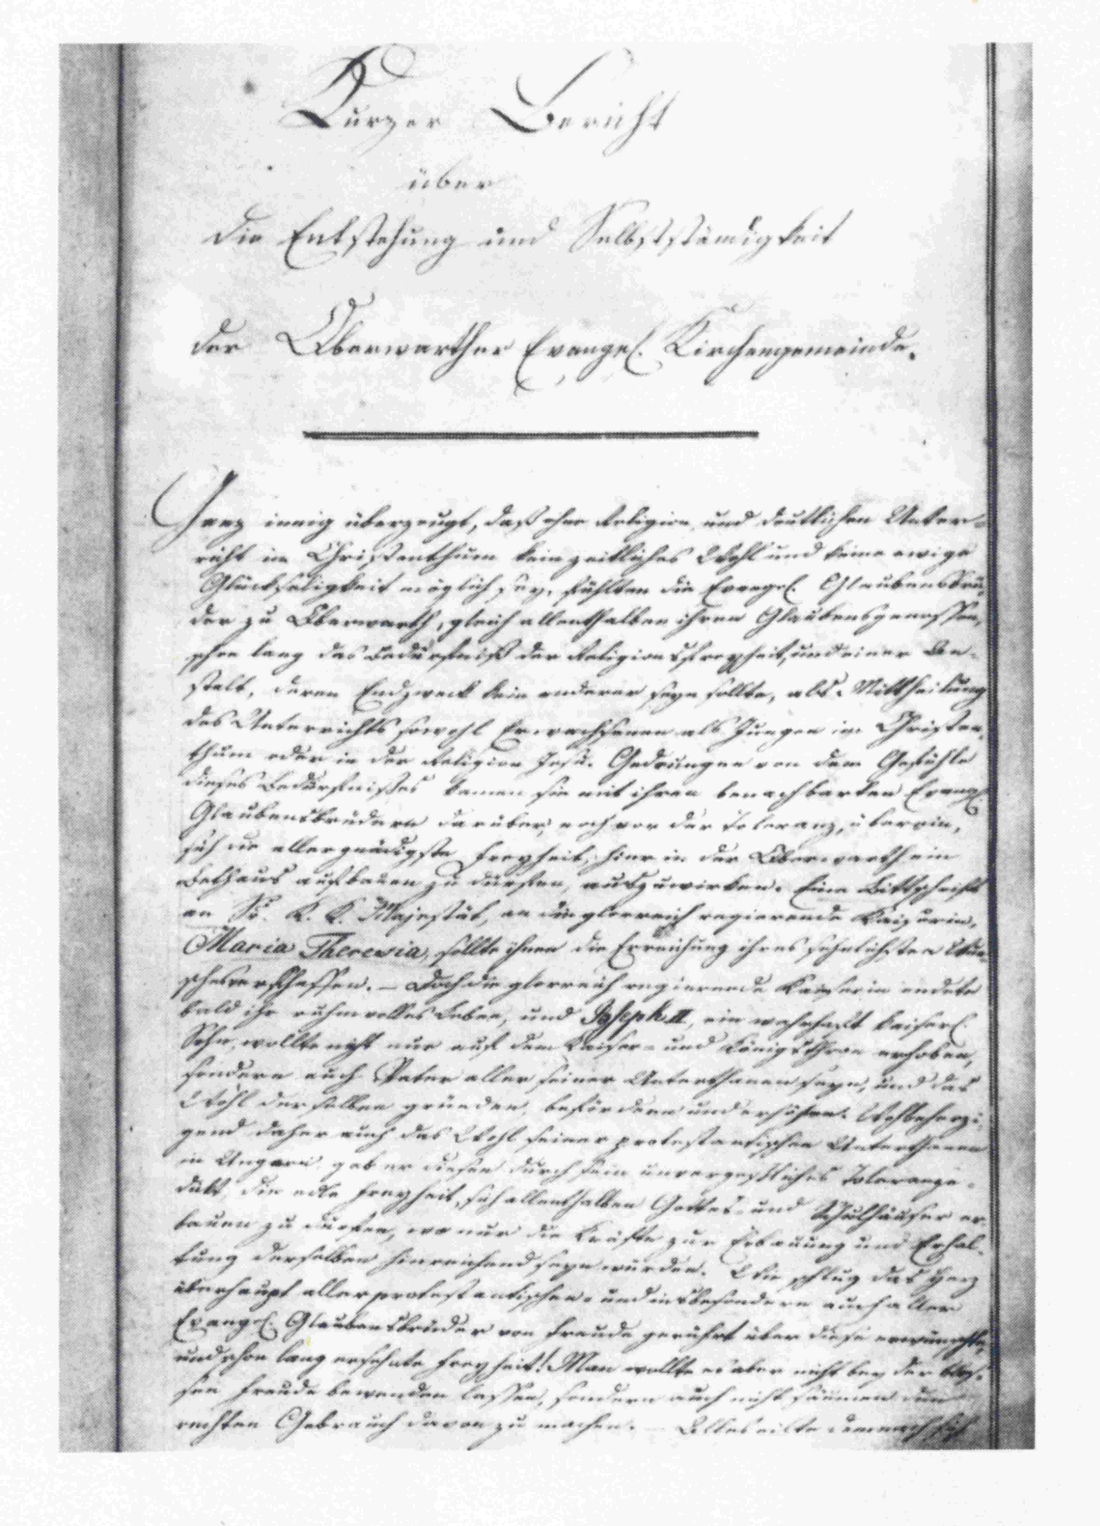 Kurzer Bericht
über
die Entstehung und Selbstständigkeit
der Oberwarther Evangel. Kirchengemeinde.
Ganz innig überzeugt, daß ohne Religion und deutlichen Unter-
richt im Christenthum kein zeitliches Wohl und keine ewige
Glückseligkeit möglich sey, fühlten die Evangel. Glaubensbrü-
der zu Oberwarth, gleich allenthalben ihren Glaubensgenossen,
schon lang das Bedürfniß der Religionsfreyheit, und einer An-
stalt, deren Endzweck kein anderer seyn sollte, als Mittheilung
des Unterrichts sowohl Erwachsenen als Jungen im Christen-
thum oder in der Religion Jesu. Gedrungen von dem Gefühle
dieses Bedürfnißes kamen sie mit ihren benachbarten Evangel.
Glaubensbrüdern darüber, noch vor der Toleranz, überein,
sich die allergnädigste Freyheit, hier in der Oberwarth ein
Bethaus aufbauen zu dürfen, auszuwirken. Eine Bittschrift
an Sr. K. K. Majestät, an die glorreich regierende Kaiserin,
Maria Theresia, sollte ihnen die Erreichung ihres sehnlichsten Wun-
sches verschaffen. – Doch die glorreich regierende Kaiserin endete
bald ihr ruhmvolles Leben, und Joseph II, ein wahrhaft kaiserl.
Sohn, wollte nicht nur auf dem Kaiser- und Königsthron erhoben,
sondern auch Vater aller seiner Unterthanen seyn, und das
Wohl derselben gründen, befördern und erhöhen. Wohlbeherzi-
gend daher auch das Wohl seiner protestantischen Unterthanen
in Ungarn gab er diesen durch sein unvergeßliches Toleranze-
dikt, die edle Freyheit, sich allenthalben Gottes- und Schulhäuser er-
bauen zu dürfen, wo nur die Kräfte zur Erbauung und Erhal-
tung derselben hinreichend seyn würden. Wie schlug das Herz
überhaupt aller protestantischen- und insbesondere auch aller
Evangel. Glaubensbrüder von Freude gerührt über diese erwünschte
und schon lang ersehnte Freyheit! Man wollte es aber nicht bey der blos-
sen Freude bewenden lassen, sondern auch nicht säumen den
rechten Gebrauch davon zu machen. – Alles eilte demnach sich